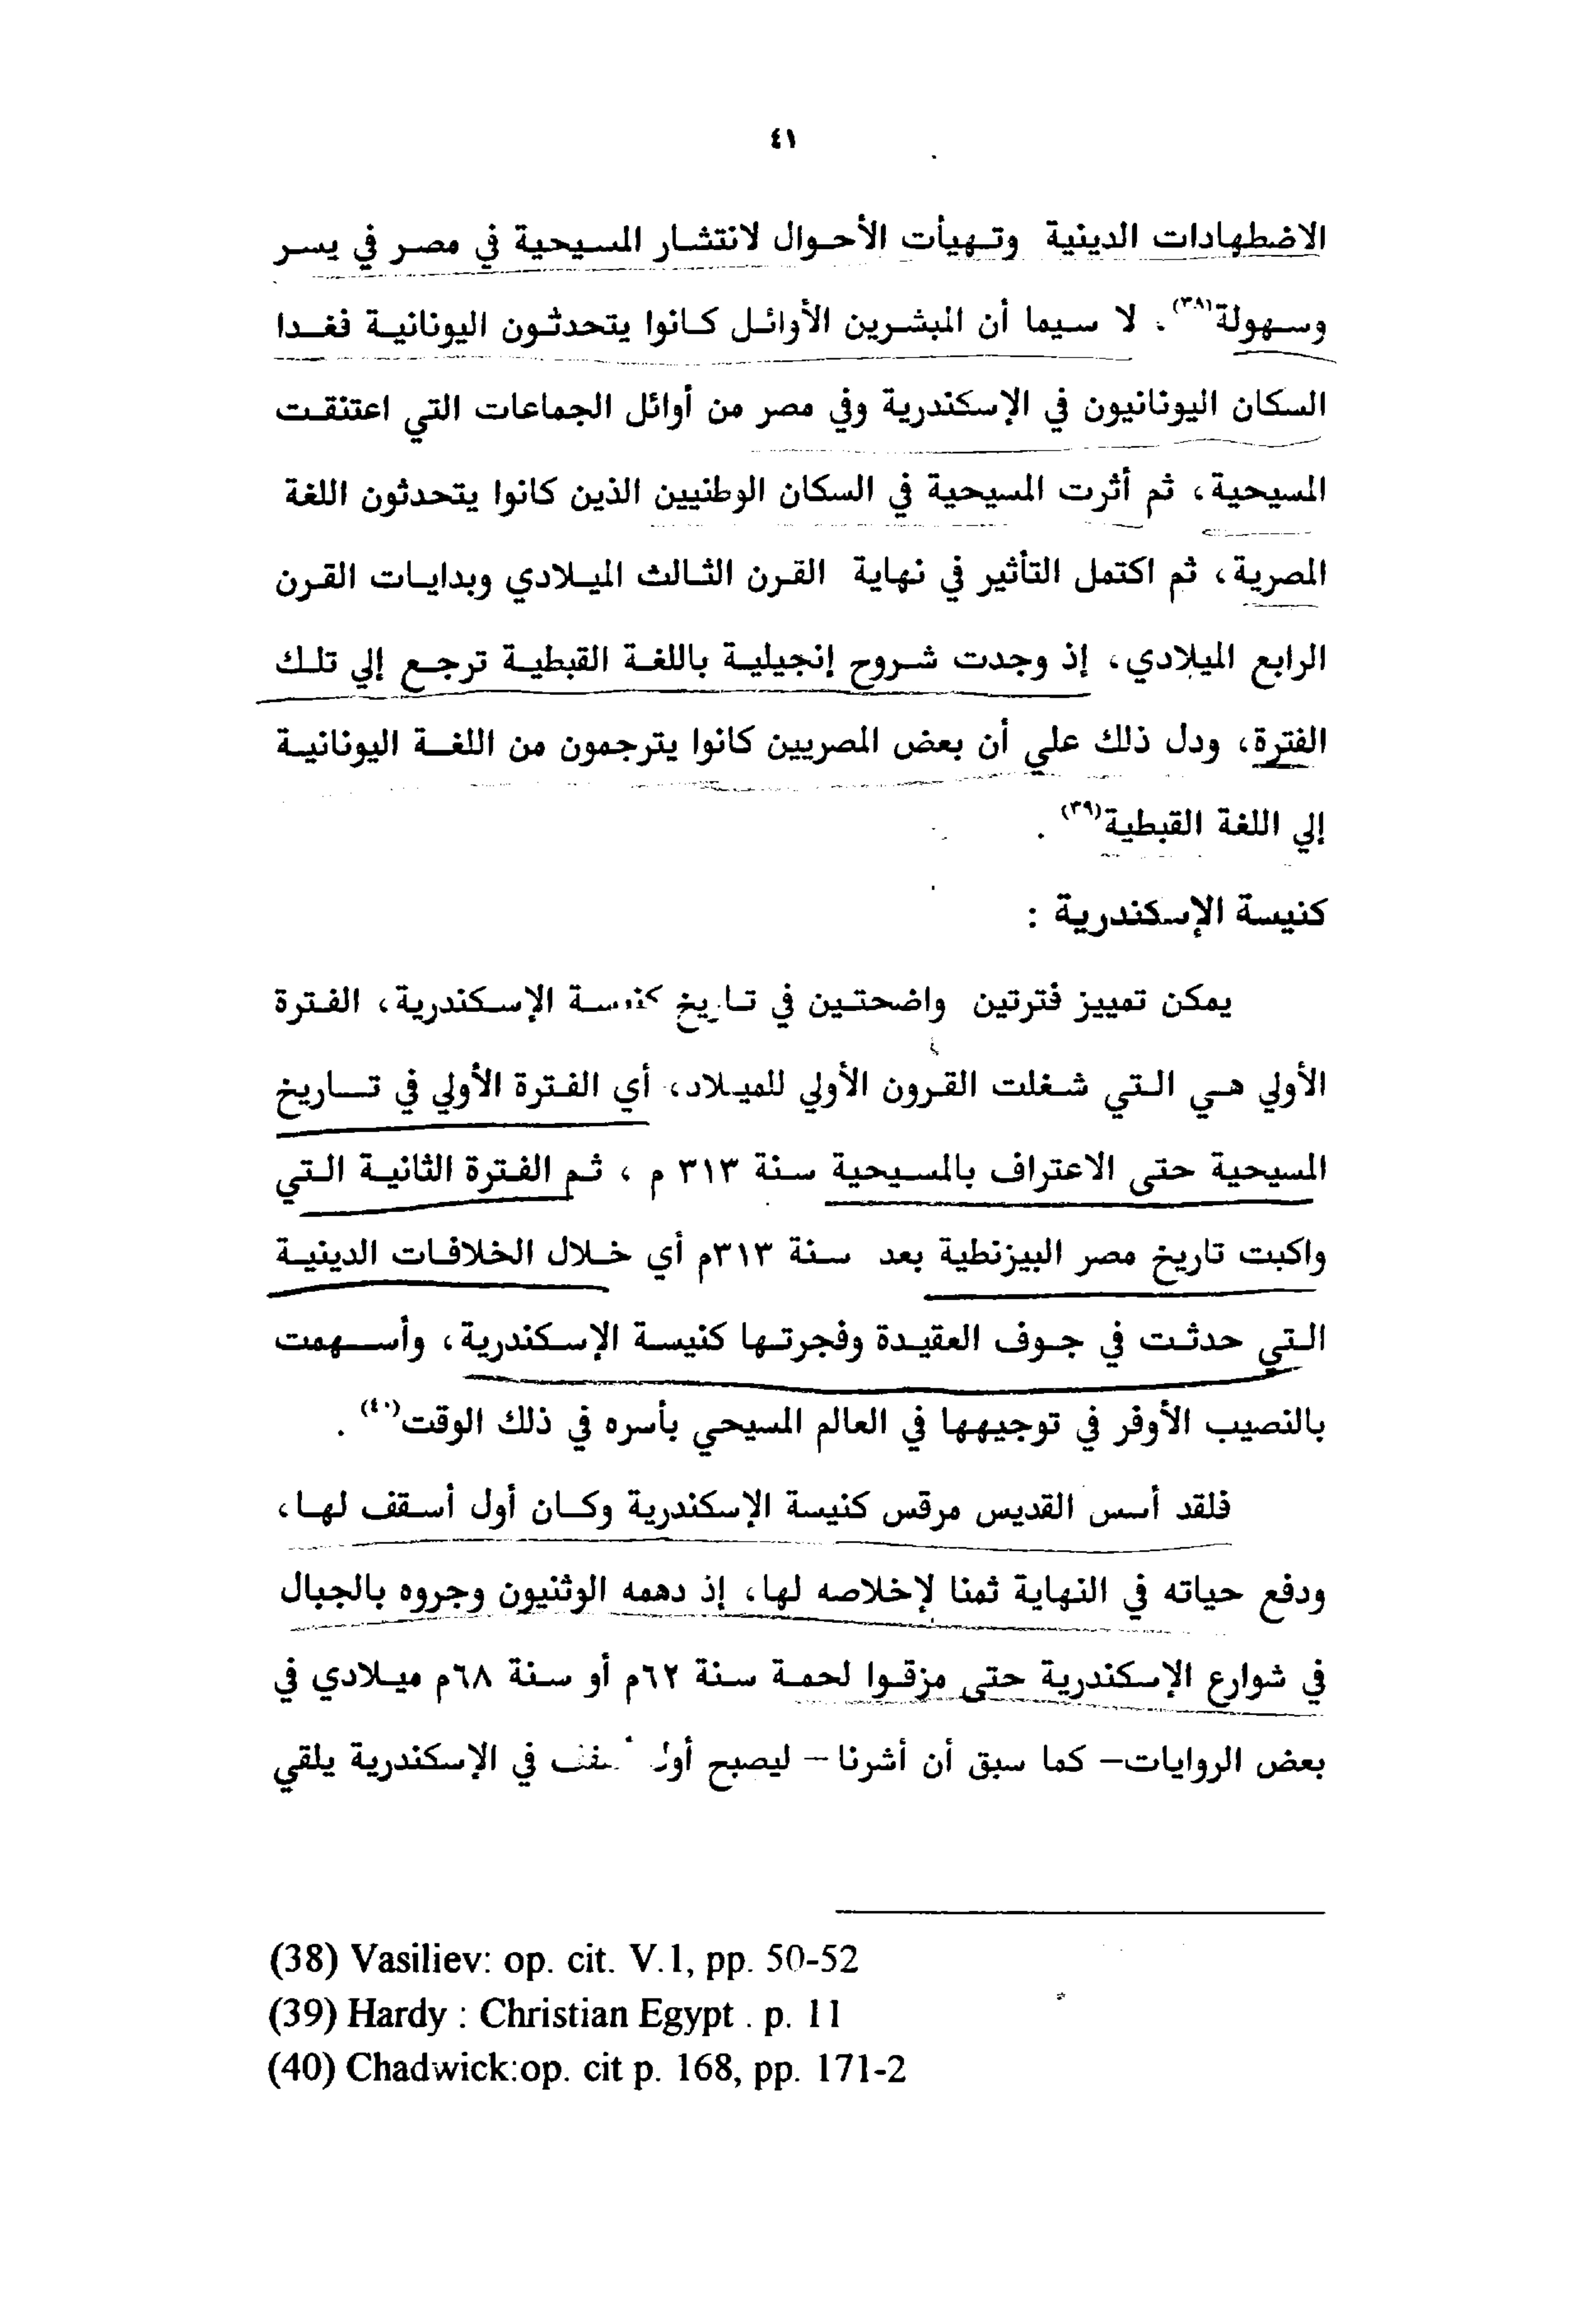 ٤١
الاضطهادات الدينية وتهيأت الأحوال لانتشار المسيحية في مصر في يسر
وسهولة(٣٨). لا سيما أن المبشرين الأوائل كانوا يتحدثون اليونانية فغدا
السكان اليونانيون في الإسكندرية وفي مصر من أوائل الجماعات التي اعتنقت
المسيحية، ثم أثرت المسيحية في السكان الوطنيين الذين كانوا يتحدثون اللغة
المصرية، ثم اكتمل التأثير في نهاية القرن الثالث الميلادي وبدايات القرن
الرابع الميلادي، إذ وجدت شروح إنجيلية باللغة القبطية ترجع إلي تلك
الفترة، ودل ذلك علي أن بعض المصريين كانوا يترجمون من اللغة اليونانية
إلي اللغة القبطية(٣٩) .
كنيسة الإسكندرية :
يمكن تمييز فترتين واضحتين في تاريخ كنيسة الإسكندرية، الفترة
الأولي هي التي شغلت القرون الأولي للميلاد، أي الفترة الأولي في تاريخ
المسيحية حتى الاعتراف بالمسيحية سنة ٣١٣ م ، ثم الفترة الثانية التي
واكبت تاريخ مصر البيزنطية بعد سنة ٣١٣م أي خلال الخلافات الدينية
التي حدثت في جوف العقيدة وفجرتها كنيسة الإسكندرية، وأسهمت
بالنصيب الأوفر في توجيهها في العالم المسيحي بأسره في ذلك الوقت(٤٠) .
فلقد أسس القديس مرقس كنيسة الإسكندرية وكان أول أسقف لها،
ودفع حياته في النهاية ثمنا لإخلاصه لها، إذ دهمه الوثنيون وجروه بالجبال
في شوارع الإسكندرية حتى مزقوا لحمة سنة ٦٢م أو سنة ٦٨م ميلادي في
بعض الروايات– كما سبق أن أشرنا – ليصبح أول أسقف في الإسكندرية يلقي
(38) Vasiliev: op. cit. V.1, pp. 50-52
(39) Hardy : Christian Egypt . p. 11
(40) Chadwick:op. cit p. 168, pp. 171-2